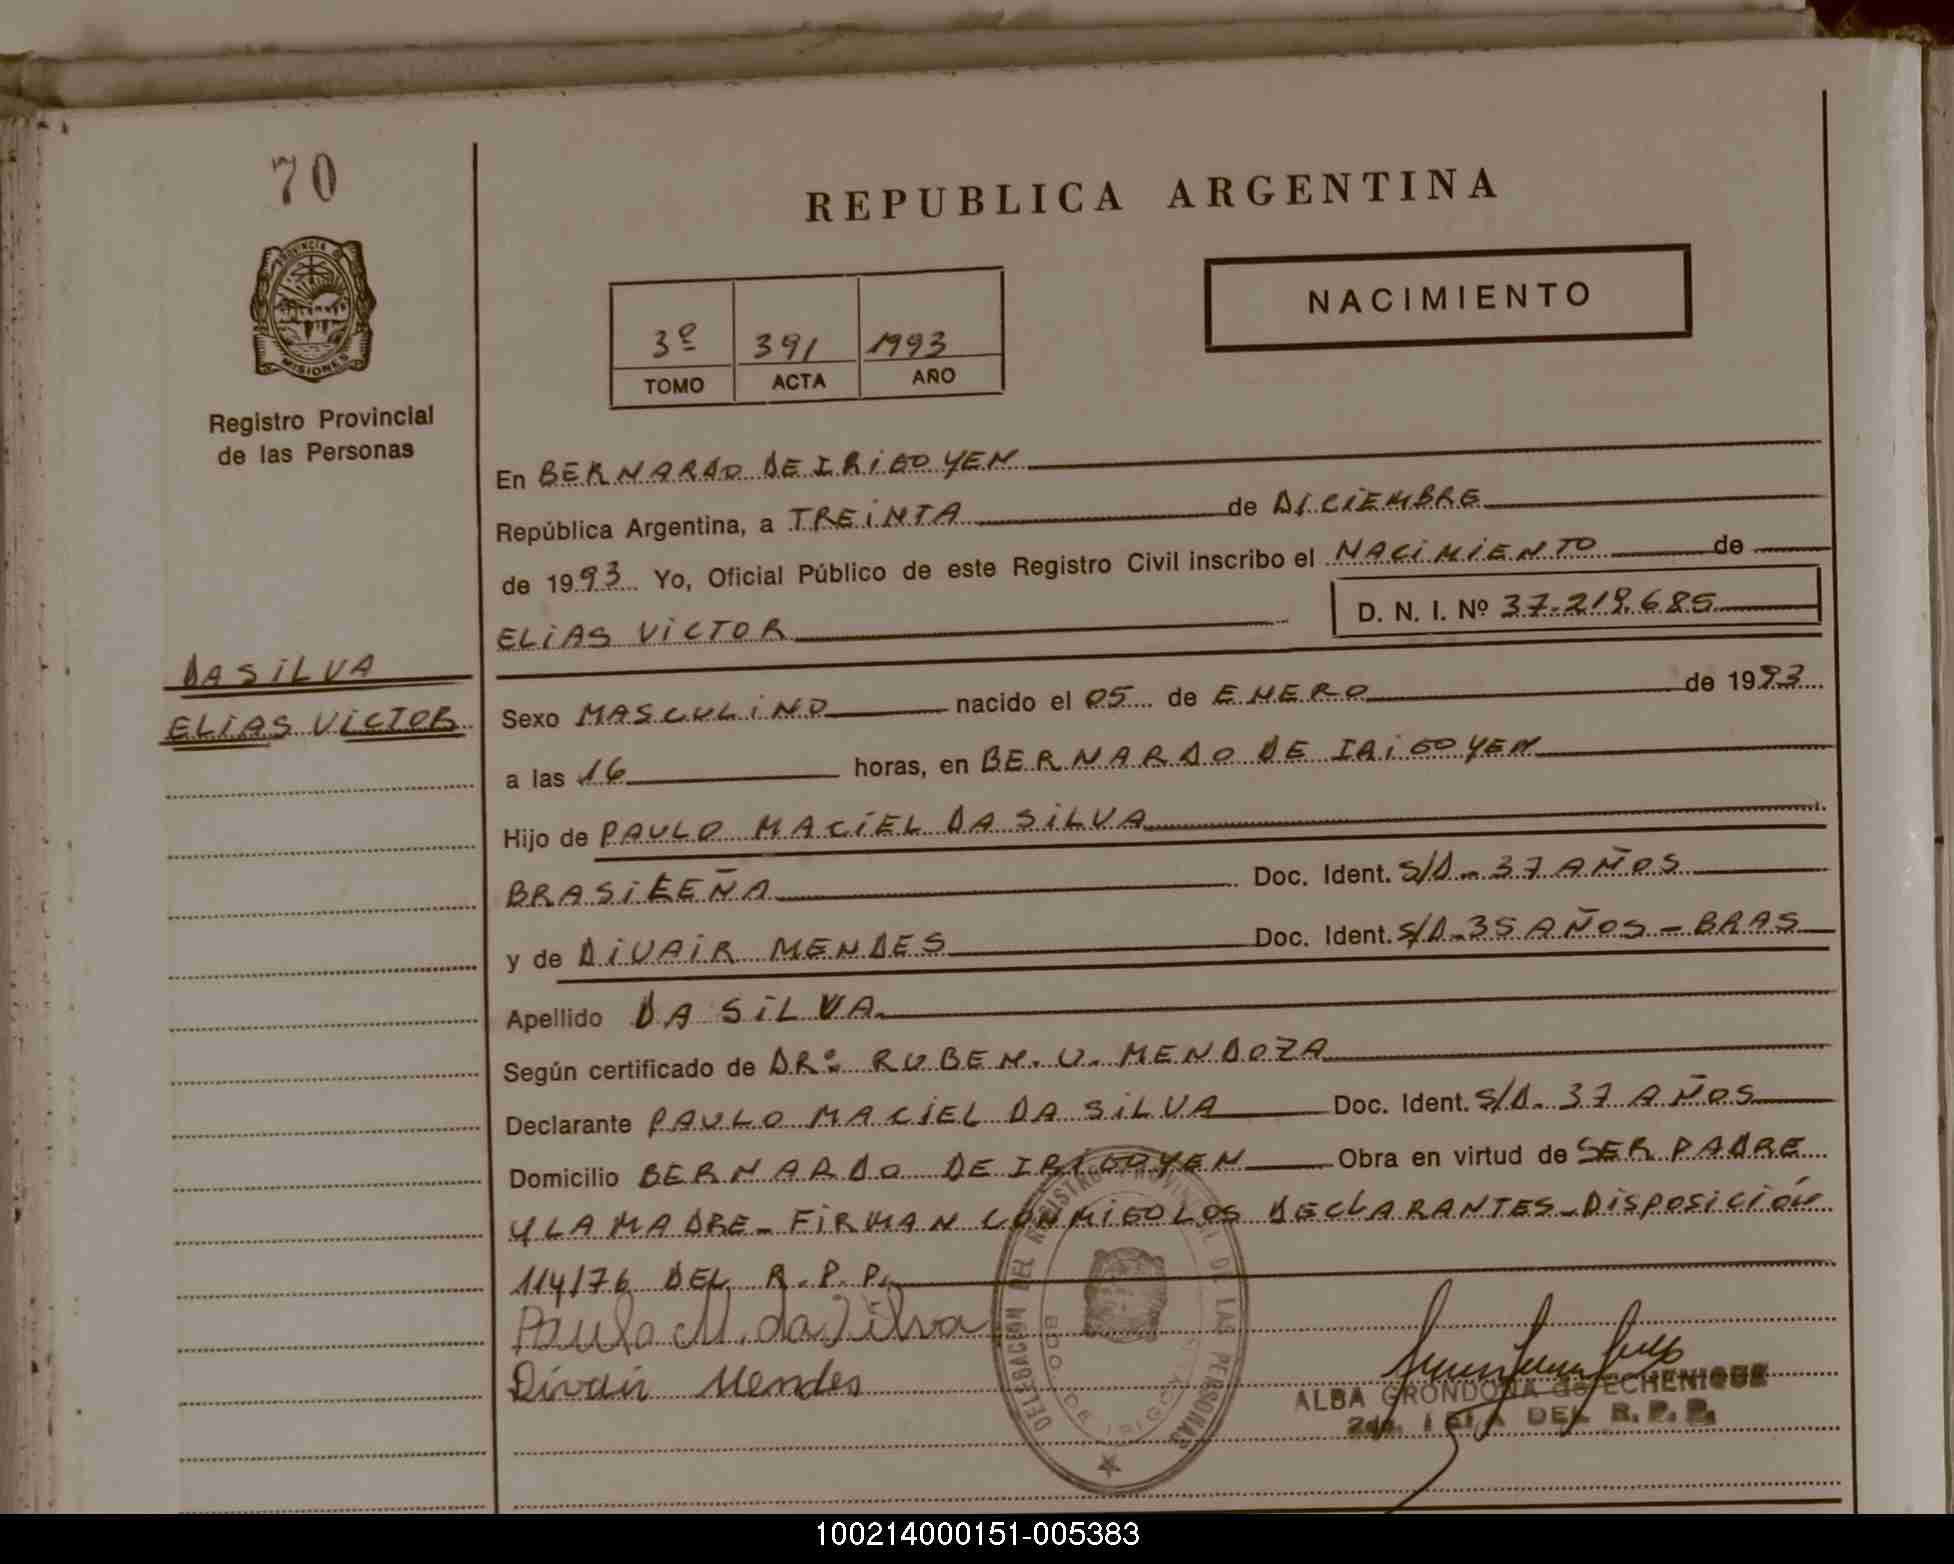 70
PROVINCIA DE
MISIONES
Registro Provincial
de las Personas
REPUBLICA ARGENTINA
NACIMIENTO
3º 391 1993
TOMO ACTA AÑO
En BERNARDO DE IRIGOYEN
República Argentina, a TREINTA de DICIEMBRE
de 1993 Yo, Oficial Público de este Registro Civil inscribo el NACIMIENTO de
ELIAS VICTOR
D. N. I. Nº 37.219.685
DA SILVA
ELIAS VICTOR
Sexo MASCULINO nacido el 05 de ENERO de 1993
a las 16 horas, en BERNARDO DE IRIGOYEN
Hijo de PAULO MACIEL DA SILVA
BRASILEÑA Doc. Ident. S/D - 37 AÑOS
y de DIVAIR MENDES Doc. Ident. S/D - 35 AÑOS - BRAS
Apellido DA SILVA
Según certificado de DRº RUBEN. U. MENDOZA
Declarante PAULO MACIEL DA SILVA Doc. Ident. S/D. 37 AÑOS
Domicilio BERNARDO DE IRIGOYEN Obra en virtud de SER PADRE
Y LA MADRE - FIRMAN CONMIGO LOS DECLARANTES - DISPOSICIÓN
114/76 DEL R. P. P.
Paulo M. da Silva
Divair Mendes
DELEGACION DEL REGISTRO PROVINCIAL DE LAS PERSONAS
BDO. DE IRIGOYEN
ALBA GRONDONA de ECHENIQUE
DEL R. P. P.
100214000151-005383